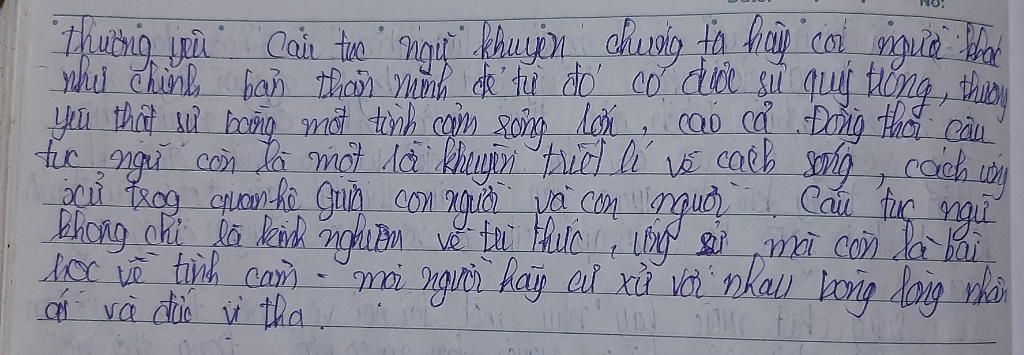 thương yêu. Câu tục ngữ khuyên chúng ta hãy coi người khác
như chính bản thân mình để từ đó có được sự quý trọng, thương
yêu thật sự bằng một tình cảm rộng lớn, cao cả. Đồng thời câu
tục ngữ còn là một lời khuyên triết lí về cách sống, cách ứng
xử trog quan hệ giữa con người và con người. Câu tục ngữ
không chỉ là kinh nghiệm về tri thức, ứng sử, mà còn là bài
học về tình cảm - mọi người hãy cư xử với nhau bằng lòng nhân
ái và đức vị tha.